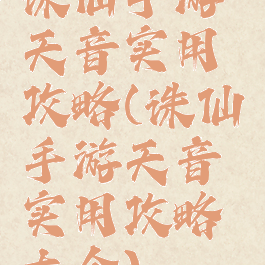 诛仙手游
天音实用
攻略(诛仙
手游天音
实用攻略
大全)